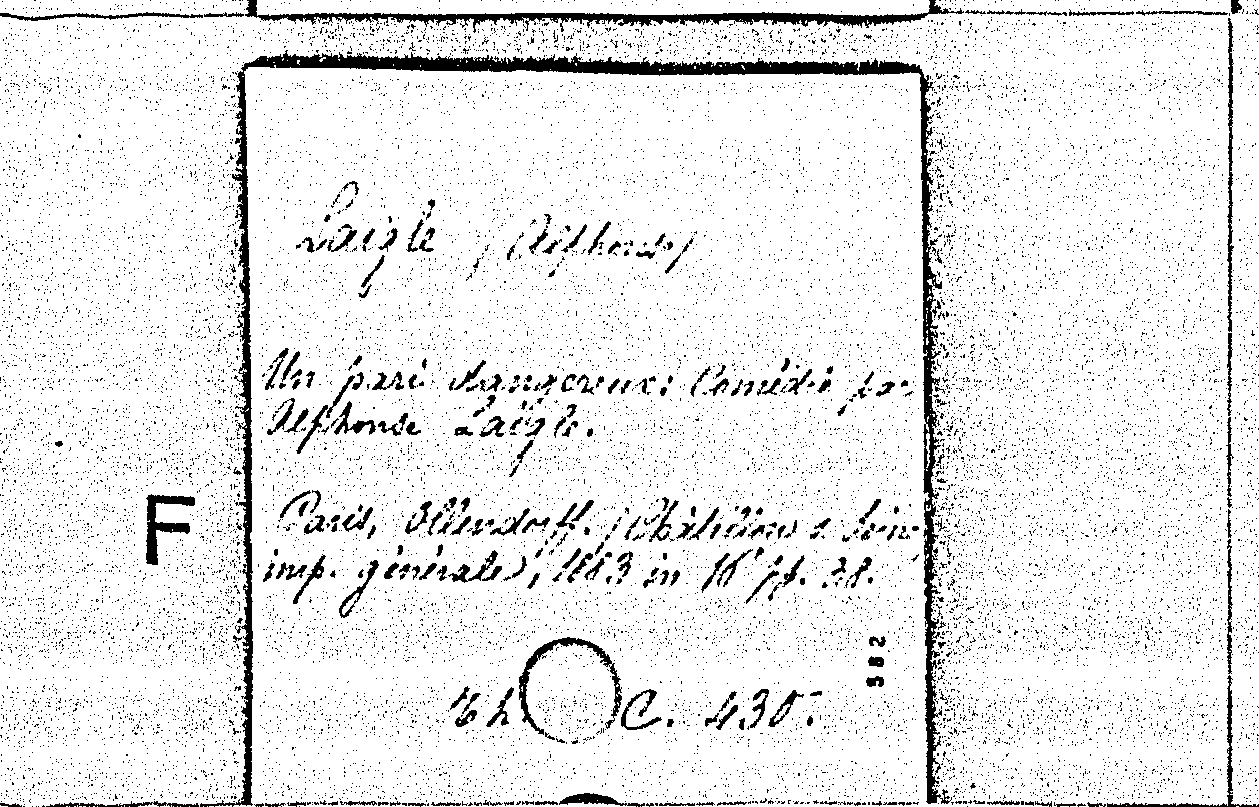 Laigle (Alphonse)
Un pari dangereux: Comédie par
Alphonse Laigle.
F
Paris, Ollendorff. (Châtillon s Seine
imp. générale), 1883 in 16 pp. 38.
582
Th. C. 430.